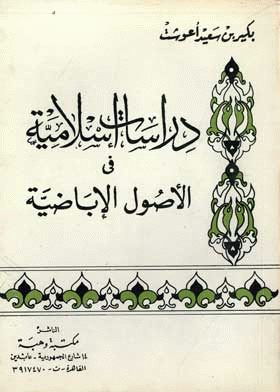 بكير بن سعيد أعوشت
دراسات إسلامية
في
الأصول الإباضية
الناشر
مكتبة وهبة
١٤ شارع الجمهورية - عابدين
القاهرة - ت - ٣٩١٧٤٧٠